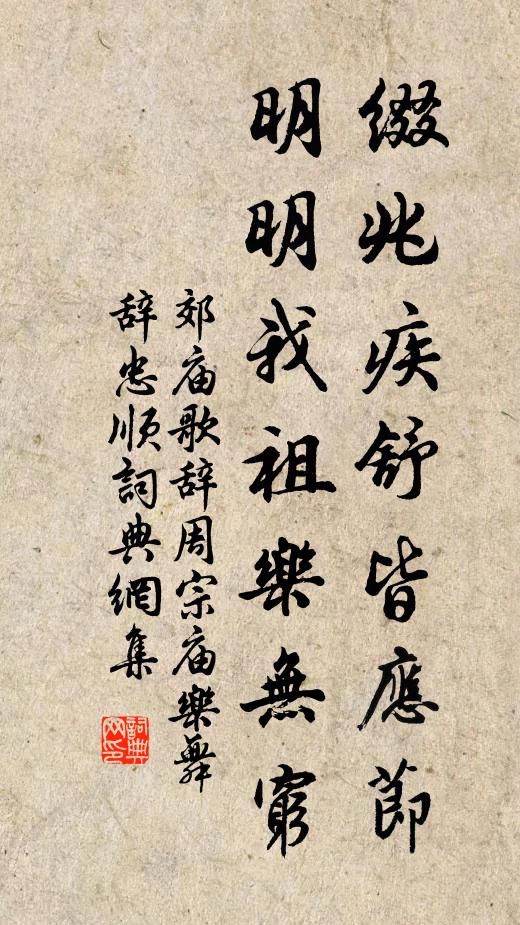 綴兆疾舒皆應節
明明我祖樂無窮
郊庙歌辞周宗庙樂舞
辞忠順詞典網集
詞典網印